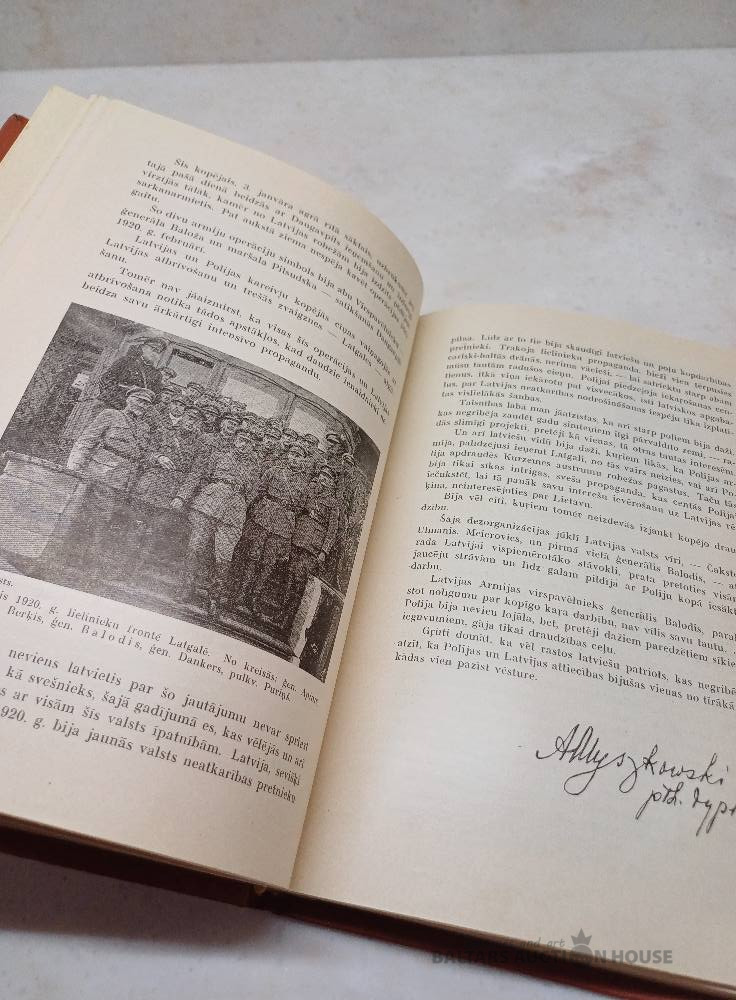 Šis kopējais, 3. janvāra agrā rītā sāktais, uzbrukums jau
tajā pašā dienā beidzās ar Daugavpils ieņemšanu un
virzījās tālāk, kamēr no Latvijas robežām bija izdzīts pēdējais
sarkanarmietis. Pat aukstā ziema nespēja kavēt operāciju
gaitu.
Šo divu armiju operāciju simbols bija abu Virspavēlnieku
ģenerāļa Baloža un maršala Pilsudska — satikšanās Daugavpilī
1920. g. februārī.
Latvijas un Polijas kareivju kopējās cīņas vainagojās ar
Latvijas atbrīvošanu un trešās zvaigznes — Latgales —
šanu.
Tomēr nav jāaizmirst, ka visus šīs operācijas un Latvijas
atbrīvošana notika tādos apstākļos, kad daudzie ienaidnieki ne-
beidza savu ārkārtīgi intensīvo propagandu.
sts.
is 1920. g. lielinieku frontē Latgalē. No kreisās: ģen. Apinis
Berķis, ģen. Balodis, ģen. Dankers, pulkv. Puriņš.
neviens latvietis par šo jautājumu nevar spriest
kā svešnieks, šajā gadījumā es, kas vēlējās un arī
s ar visām šīs valsts īpatnībām. Latvija, sevišķi
920. g. bija jaunās valsts neatkarības pretnieku
pilna. Līdz ar to tie bija skaudīgi latviešu un poļu kopdarbības
pretinieki. Trakoja lielinieku propaganda, bieži vien tērpusies
cariski-baltās drānās, nerima vācieši, — lai satriektu starp abām
mūsu tautām radušos cieņu. Polijai piedzēja iekarošanas cen-
tienus, itkā viņa iekārotu pat visvecākos, īsti latviskos apgaba-
lus, par Latvijas neatkarības nodrošināšanas iespēju tika izplatī-
tas vislielākās šaubas.
Taisnības labā man jāatzīstas, ka arī starp poļiem bija daži,
kas negribēja zaudēt gadu simteņiem ilgi pārvaldīto zemi, — ra-
dās slimīgi projekti, pretēji kā vienas, tā otras tautas interesēm.
Un arī latviešu vidū bija daži, kuriem likās, ka Polijas ar-
mija, palīdzējusi ieņemt Latgali, no tās vairs neizies, vai arī Po-
lija apdraudēs Kurzemes austrumu robežas pagastus. Taču tās
bija tikai sīkas intrigas, sveša propaganda, kas centās Polijai
iečukstēt, lai tā panāk savu interešu ievērošanu uz Latvijas rē-
ķina, neinteresējoties par Lietavu.
Bija vēl citi, kuriem tomēr neizdevās izjaukt kopējo drau-
dzību.
Šajā dezorganizācijas jūklī Latvijas valsts vīri, — Čakste
Ulmanis, Meierovics, un pirmā vietā ģenerālis Balodis, —
rada Latvijai vispiemērotāko stāvokli, prata pretoties visām
jaucēju strāvām un līdz galam pildīja ar Poliju kopā iesākt
darbu.
Latvijas Armijas virspavēlnieks ģenerālis Balodis, paral
stot nolīgumu par kopīgo kara darbību, nav vīlis savu tautu.
Polija bija nevien lojāla, bet, pretēji dažiem paredzētiem sīkie
ieguvumiem, gāja tikai draudzības ceļu.
Grūti domāt, ka vēl rastos latviešu patriots, kas negribē
atzīt, ka Polijas un Latvijas attiecības bijušas vienas no tīrākā
kādas vien pazīst vēsture.
AMyszkowski
płk. dypl
and art
BALTARS AUCTION HOUSE